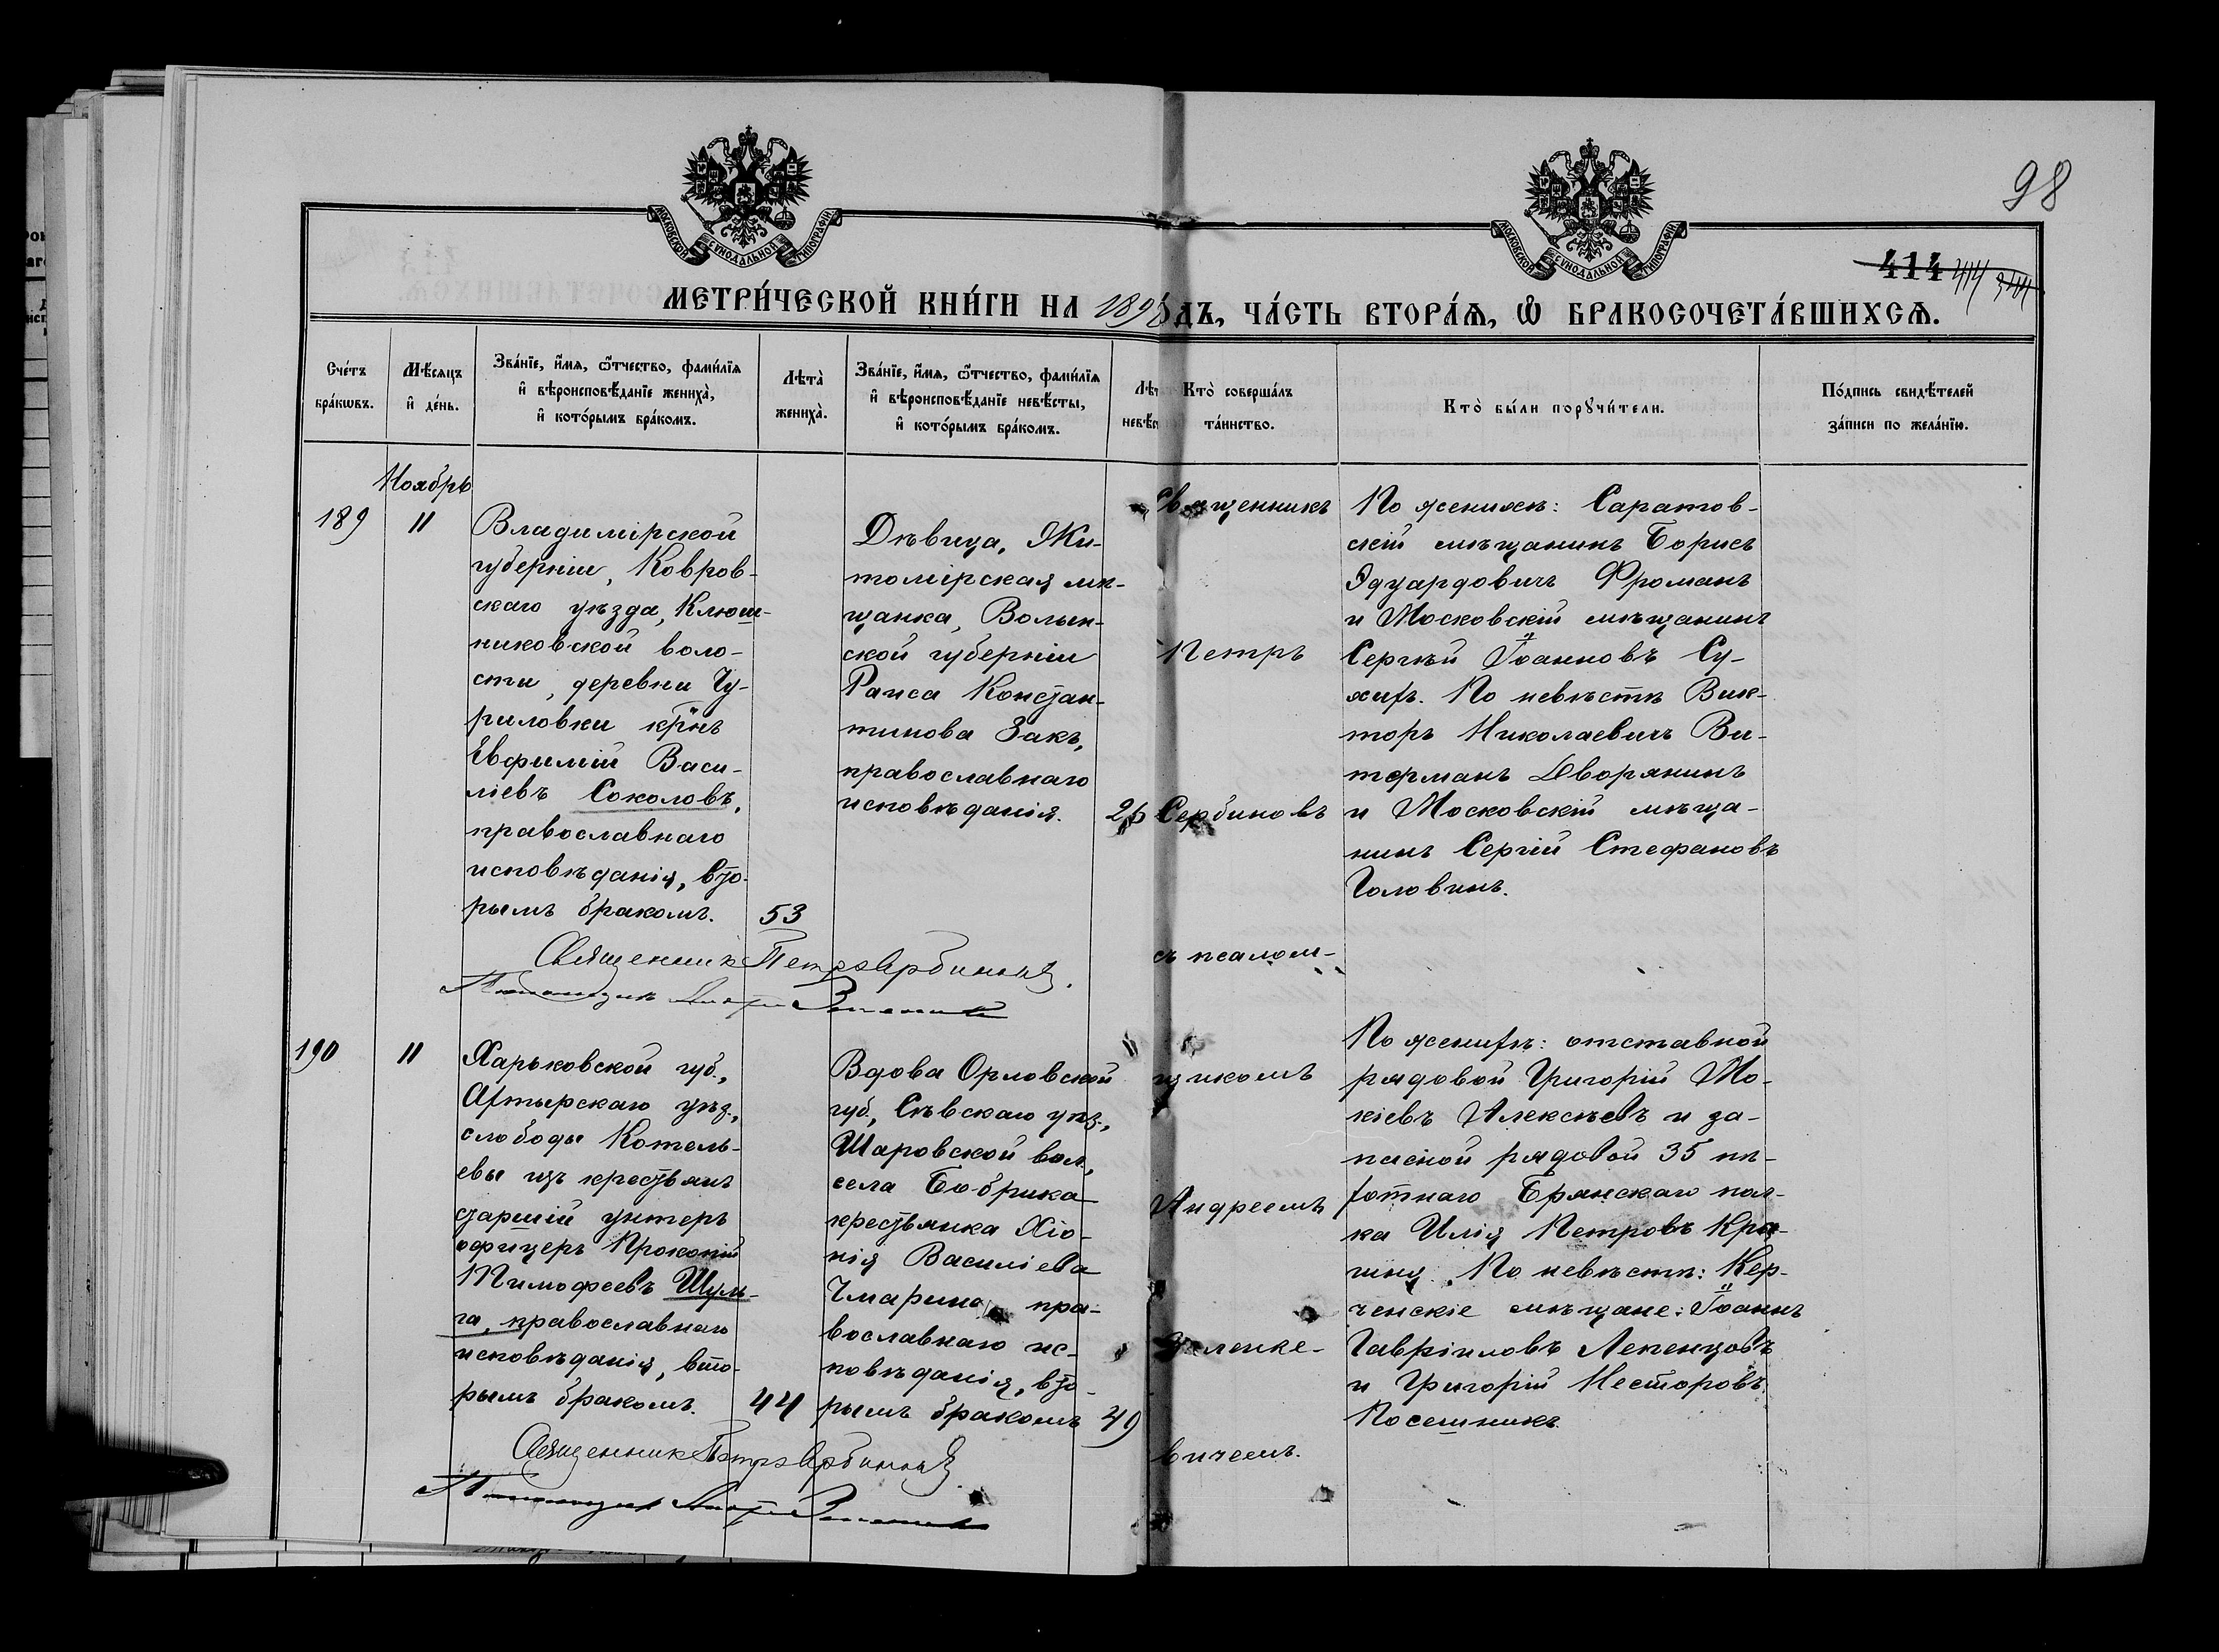 98
МОСКОВСКОЙ СУНОДАЛЬНОЙ ТИПОГРАФІИ
МОСКОВСКОЙ СУНОДАЛЬНОЙ ТИПОГРАФІИ
414 414
МЕТРИ́ЧЕСКОЙ КНИ́ГИ НА 1898 ДЪ, ЧА́СТЬ ВТОРА́Ѧ, Ѽ БРАКОСОЧЕТА́ВШИХСѦ.
Сче́тъ бра́кѡвъ.
Мѣ́сяцъ и҆ де́нь.
Зва́нїе, и҆́мѧ, ѻ҆́тчество, фами́лїѧ
и҆ вѣроисповѣ́данїе жениха̀,
и҆ кото́рымъ бра́комъ.
Лѣта̀ жениха̀.
Зва́нїе, и҆́мѧ, ѻ҆́тчество, фами́лїѧ
и҆ вѣроисповѣ́данїе невѣ́сты,
и҆ кото́рымъ бра́комъ.
Лѣт невѣ́с
Кто̀ соверша́лъ
та́инство.
Кто̀ бы́ли порꙋчи́тели.
По́дпись свидѣ́телей
за́писи по жела́нїю.
Ноябрь
189
11
Владимірской
губерніи, Ковров-
скаго уѣзда, Клюш-
никовской воло-
сти, деревни Чу-
риловки кр̃нъ
Евфимій Васи-
ліевъ Соколовъ,
православнаго
исповѣданія, вто-
рымъ бракомъ.
53
Дѣвица, Жи-
томірская мѣ-
щанка, Волын-
ской губерніи
Раиса Констан-
тинова Закъ,
православнаго
исповѣданія.
26
Священникъ
Петръ
Сербиновъ
съ псалом-
По женихѣ: Саратов-
скій мѣщанинъ Борисъ
Эдуардовичъ Фроманъ
и Московскій мѣщанинъ
Сергѣй Іоанновъ Су-
хихъ. По невѣстѣ Вик-
торъ Николаевичъ Ви-
терманъ Дворянинъ
и Московскій мѣща-
нинъ Сергій Стефановъ
Головинъ.
Священникъ Петръ Сербиновъ.
190
11
Харьковской губ.,
Ахтырскаго уѣз.,
слободы Котель-
вы изъ крестьянъ
старшій унтеръ
офицеръ Прокопій
Тимофеевъ Шуль-
га, православнаго
исповѣданія, вто-
рымъ бракомъ.
44
Вдова Орловской
губ., Сѣвскаго уѣз.,
Шаровской вол.,
села Бобрика
крестьянка Хіо-
нія Василіева
Чмарина, пра-
вославнаго ис-
повѣданія, вто-
рымъ бракомъ
49
щикомъ
Андреемъ
Зеленке-
вичемъ.
По женихѣ: отставной
рядовой Григорій Мо-
кіевъ Алексѣевъ и за-
пасной рядовой 35 пѣ-
хотнаго Брянскаго пол-
ка Илія Петровъ Кра-
По невѣстѣ: Кер-
ченскіе мѣщане: Іоаннъ
Гавріиловъ Лепенцовъ
и Григорій Несторовъ
Посешникъ.
Священникъ Петръ Сербиновъ